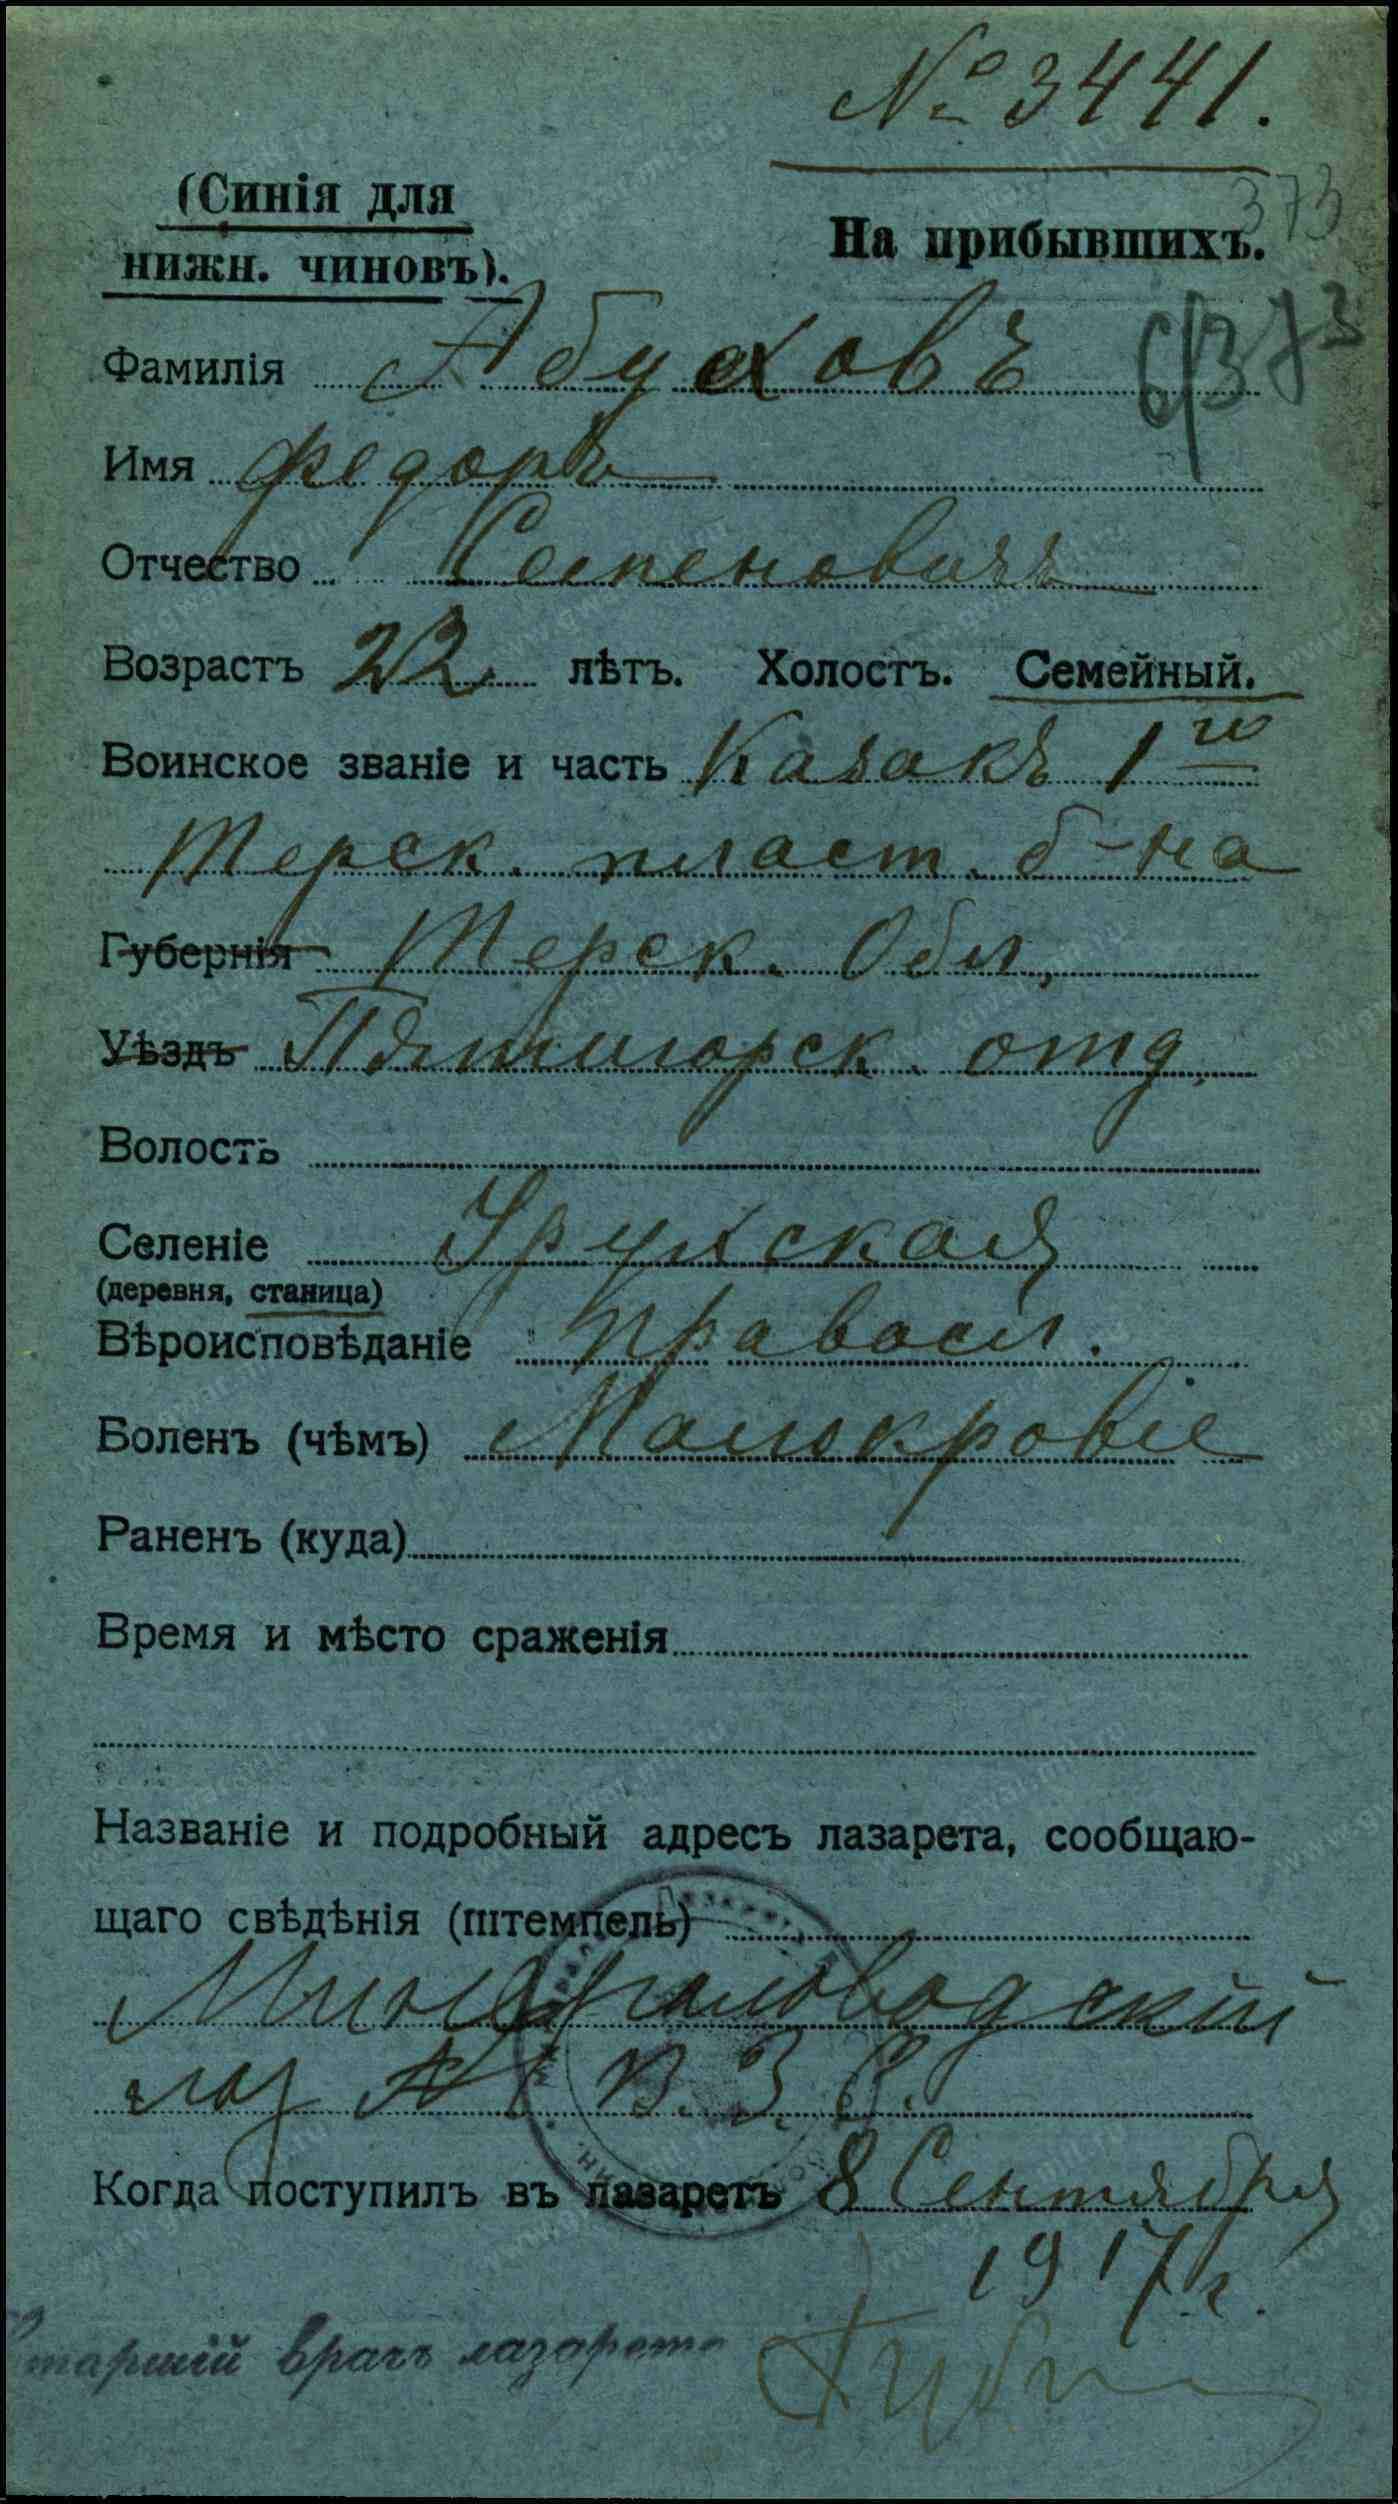 № 3441.
373
(Синія для
нижн. чиновъ).
На прибывшихъ.
6/373
Фамилія Абуховъ
Имя Федоръ
Отчество Семеновичъ
Возрастъ 22 лѣтъ. Холостъ. Семейный.
Воинское званіе и часть Казакъ 1го
Терск. пласт. б-на
Губернія Терск. Обл.
Уѣздъ Пятигорск. отд.
Волость
Селеніе Урухская
(деревня, станица)
Вѣроисповѣданіе правосл.
Боленъ (чѣмъ) Малокровіе
Раненъ (куда)
Время и мѣсто сраженія
Названіе и подробный адресъ лазарета, сообщаю-
щаго свѣдѣнія (штемпель)
Минераловодскій
лаз № 1 В. З. С.
Когда поступилъ въ лазаретъ 8 Сентября
1917 г.
Старшій врачъ лазарета